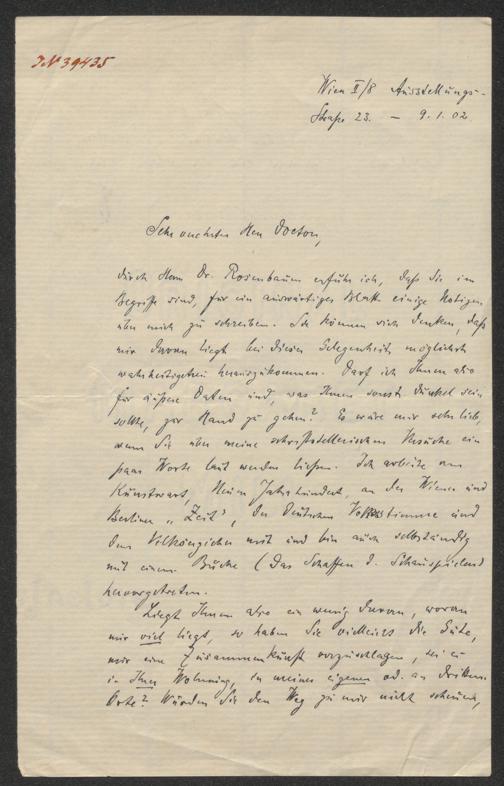 JN 39435
Wien II/8 Ausstellungs-
straße 23. – 9.1.02
Sehr verehrter Herr Doctor,
durch Herrn Dr. Rosenbaum erfuhr ich, daß Sie im
Begriffe sind, für ein auswärtiges Blatt einige Notizen
über mich zu schreiben. Sie können sich denken, daß
mir daran liegt bei dieser Gelegenheit möglichst
wahrheitsgetreu herauszukommen. Darf ich Ihnen also
für äußere Daten und, was Ihnen sonst dunkel sein
sollte, zur Hand zu gehen? Es wäre mir sehr lieb,
wenn Sie über meine schriftstellerischen Versuche ein
paar Worte laut werden ließen. Ich arbeite am
Kunstwart, Neuen Jahrhundert, an der Wiener und
Berliner „Zeit", der Deutschen Volksstimme und
dem Volkserzieher mit und bin auch selbständig
mit einem Buche (Das Schaffen d. Schauspielers)
hervorgetreten.
Liegt Ihnen also ein wenig daran, woran
mir viel liegt, so haben Sie vielleicht die Güte,
mir eine Zusammenkunft vorzuschlagen, sei es
in Ihrer Wohnung, in meiner eigenen od. an drittem
Orte? Würden Sie den Weg zu mir nicht scheuen,